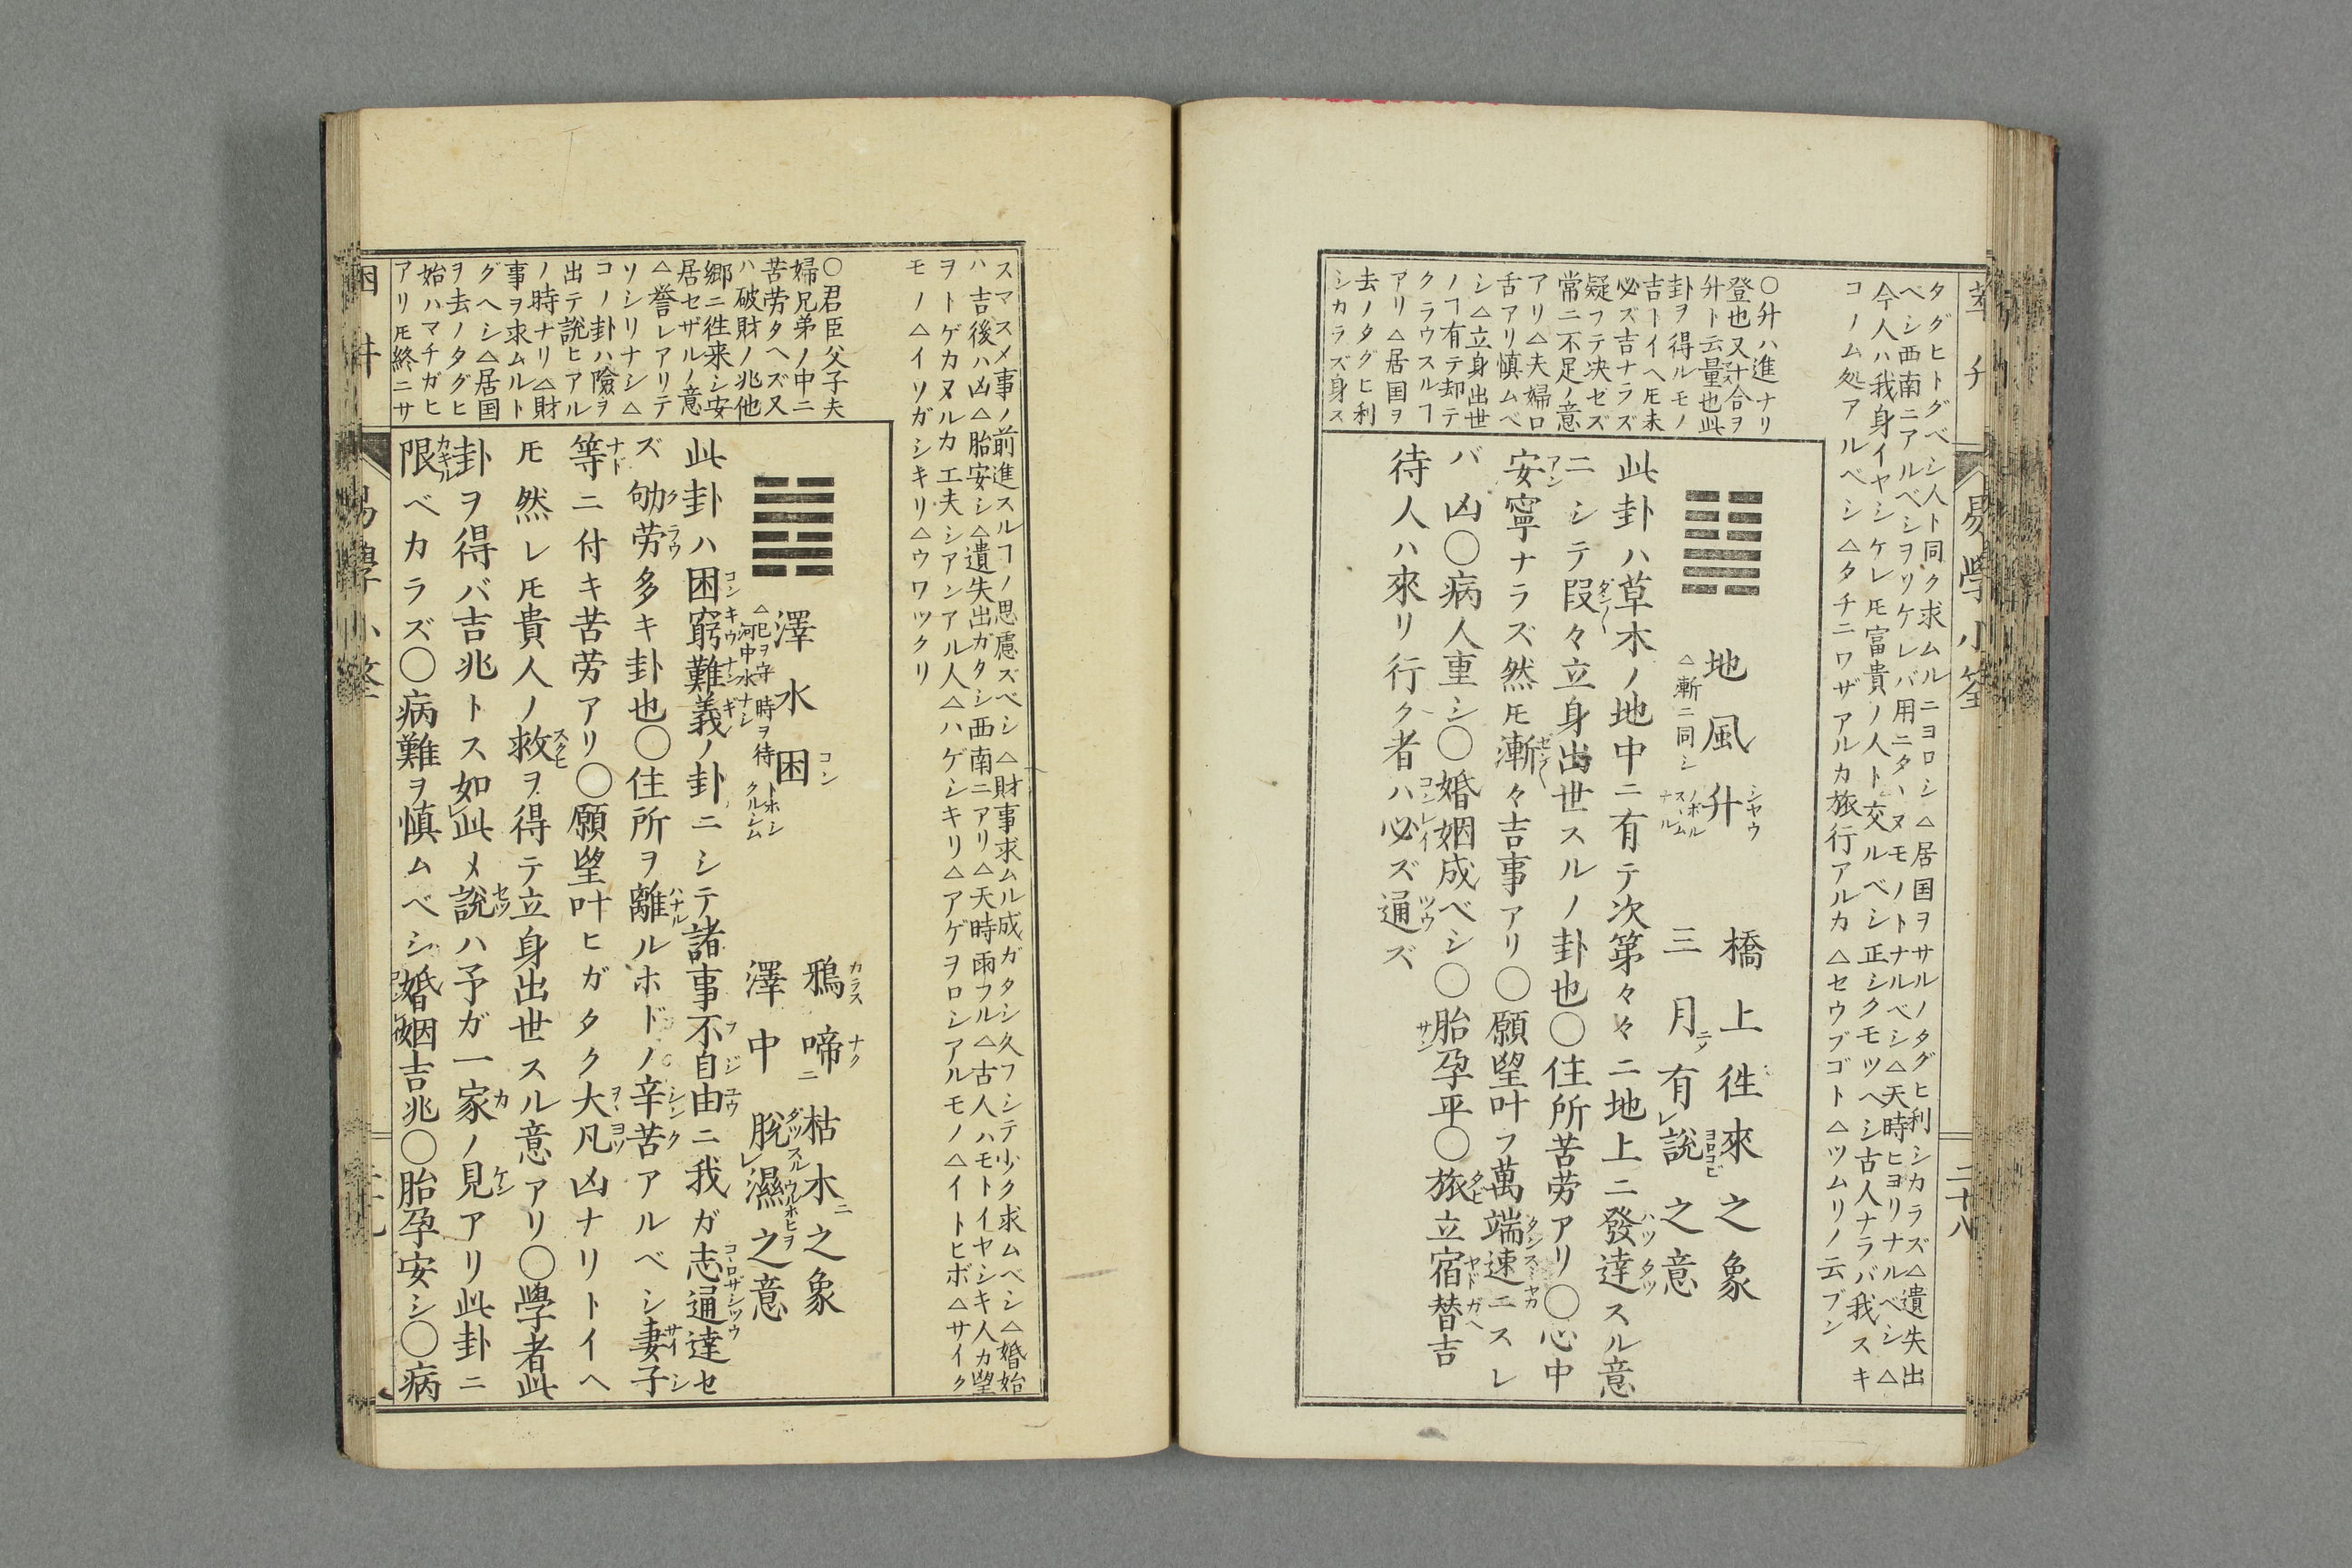 萃 升
易學小筌
二十八
タグヒトグベシ人ト同ク求ムルニヨロシ△居国ヲサルノタグヒ利シカラズ△遺失出
ベシ西南ニアルベシヲリケレバ用ニタヽヌモノトナルベシ△天時ヒヨリナルベシ△
今人ハ我身イヤシケレ𪜈富貴ノ人ト交ルベシ正シクモツヘシ古人ナラバ我スキ
コノム処アルベシ△タチニワザアルカ旅行アルカ△セウブゴト△ツムリノ云ブン
〇升ハ進ナリ
登也又十合ヲ
升ト云量也此
卦ヲ得ルモノ
吉トイヘ𪜈未
必ズ吉ナラズ
疑フテ决セズ
常ニ不足ノ意
アリ△夫婦口
舌アリ慎ムベ
シ△立身出世
ノヿ有テ却テ
クラウスルヿ
アリ△居国ヲ
去ノタグヒ利
シカラズ身ス
地風升 シヤウ ノボル スヽム ナル
△漸ニ同シ
橋上徃來之象
三月有レ説之意
此卦ハ草木ノ地中ニ有テ次第々々ニ地上ニ發達スル意
ニシテ段々立身出世スルノ卦也〇住所苦労アリ〇心中
安寧ナラズ然𪜈漸々吉事アリ〇願望叶フ萬端速ニスレ
バ凶〇病人重シ〇婚姻成ベシ〇胎孕平〇旅立宿替吉
待人ハ來リ行ク者ハ必ズ通ズ
スマスメ事ノ前進スルヿノ思慮ズベシ△財事求ムル成ガタシ久フシテ少ク求ムベシ△婚始
ハ吉後ハ凶△胎安シ△遺失出ガタシ西南ニアリ△天時雨フル△古人ハモトイヤシキ人カ望
ヲトゲカヌルカ工夫シアンアル人△ハゲシキリ△アゲヲロシアルモノ△イトヒボ△サイク
モノ△イソガシキリ△ウワツクリ
〇君臣父子夫
婦兄弟ノ中ニ
苦労タヘズ又
ハ破財ノ兆他
郷ニ徃来シ安
居セザルノ意
△誉レアリテ
ソシリナシ△
コノ卦ハ險ヲ
出テ説ヒアル
ノ時ナリ△財
事ヲ求ムルト
グヘシ△居国
ヲ去ノタグヒ
始ハマチガヒ
アリ𪜈終ニサ
澤水困 コン トホシ クルシム
△卮ヲ守時ヲ待
河中水ナシ
鴉啼ニ枯木ニ之象
澤中脱レ濕之意
此卦ハ困窮難義ノ卦ニシテ諸事不自由ニ我ガ志通達セ
ズ劬労多キ卦也〇住所ヲ離ルホドノ辛苦アルベシ妻子
等ニ付キ苦労アリ〇願望叶ヒガタク大凡凶ナリトイヘ
𪜈然レ𪜈貴人ノ救ヲ得テ立身出世スル意アリ〇學者此
卦ヲ得バ吉兆トス如レ此〆説ハ予ガ一家ノ見アリ此卦ニ
限ベカラズ〇病難ヲ慎ムベシ婚姻吉兆〇胎孕安シ〇病
困 井